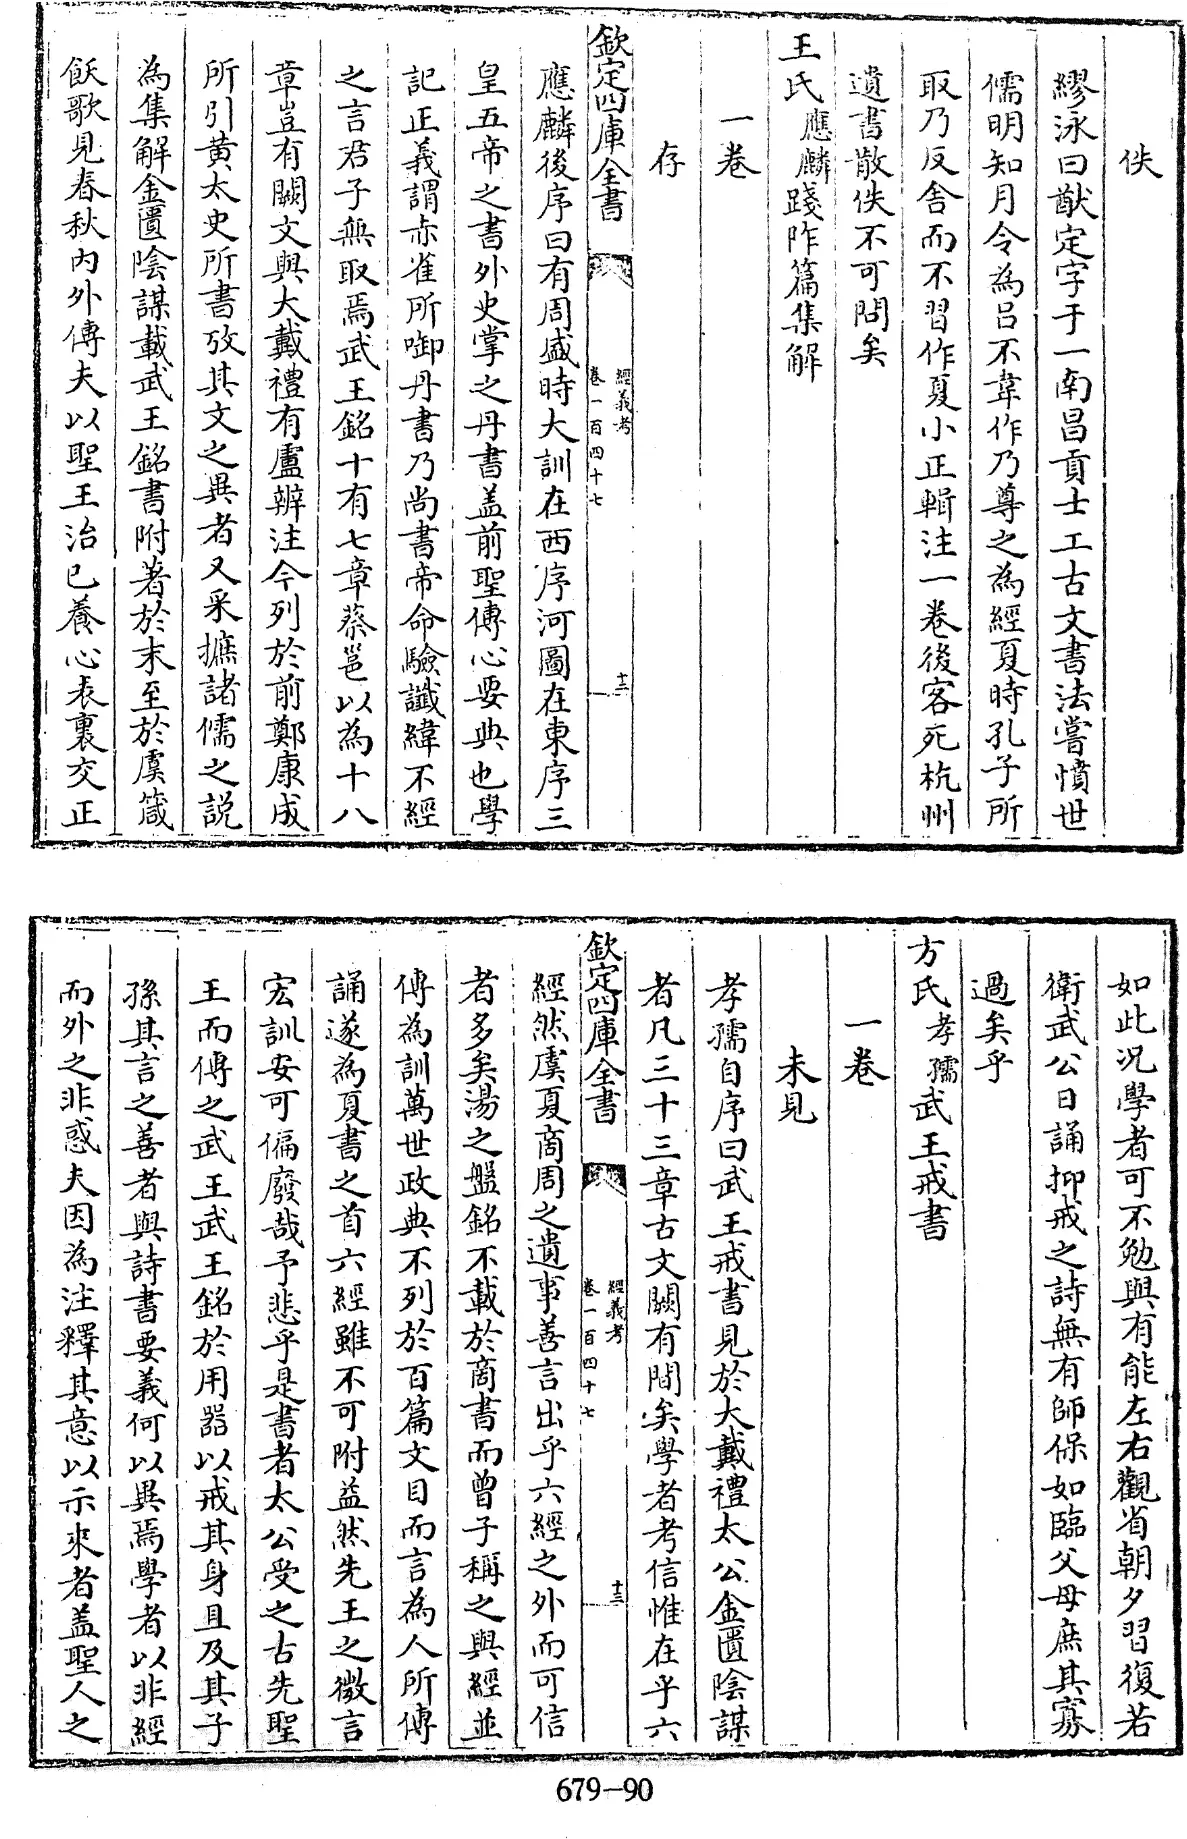 佚
繆泳曰猷定字于一南昌貢士工古文書法嘗憤世
儒明知月令為呂不韋作乃尊之為經夏時孔子所
取乃反舍而不習作夏小正輯注一卷後客死杭州
遺書散佚不可問矣
王氏應麟踐阼篇集解
一卷
存
欽定四庫全書
經義考
卷一百四十七
十二
應麟後序曰有周盛時大訓在西序河圖在東序三
皇五帝之書外史掌之丹書盖前聖傳心要典也學
記正義謂赤雀所啣丹書乃尚書帝命驗讖緯不經
之言君子無取焉武王銘十有七章蔡邕以為十八
章豈有闕文與大戴禮有盧辯注今列於前鄭康成
所引黃太史所書攷其文之異者又采摭諸儒之說
為集解金匱陰謀載武王銘書附著於末至於虞箴
飫歌見春秋內外傳夫以聖王治己養心表裏交正
如此況學者可不勉與有能左右觀省朝夕習復若
衛武公日誦抑戒之詩無有師保如臨父母庶其寡
過矣乎
方氏孝孺武王戒書
一卷
未見
孝孺自序曰武王戒書見於大戴禮太公金匱陰謀
者凡三十三章古文闕有間矣學者考信惟在乎六
欽定四庫全書
經義考
卷一百四十七
十三
經然虞夏商周之遺事善言出乎六經之外而可信
者多矣湯之盤銘不載於商書而曾子稱之與經並
傳為訓萬世政典不列於百篇文目而言為人所傳
誦遂為夏書之首六經雖不可附益然先王之微言
宏訓安可偏廢哉予悲乎是書者太公受之古先聖
王而傳之武王武王銘於用器以戒其身且及其子
孫其言之善者與詩書要義何以異焉學者以非經
而外之非惑夫因為注釋其意以示來者盖聖人之
679-90